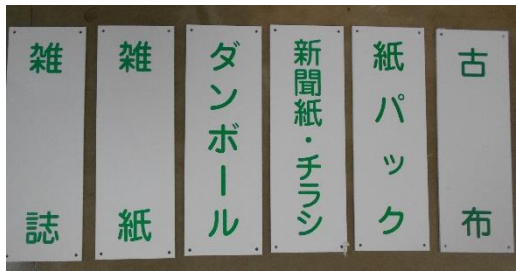 雑誌
雑紙
ダンボール
新聞紙・チラシ
紙パック
古布